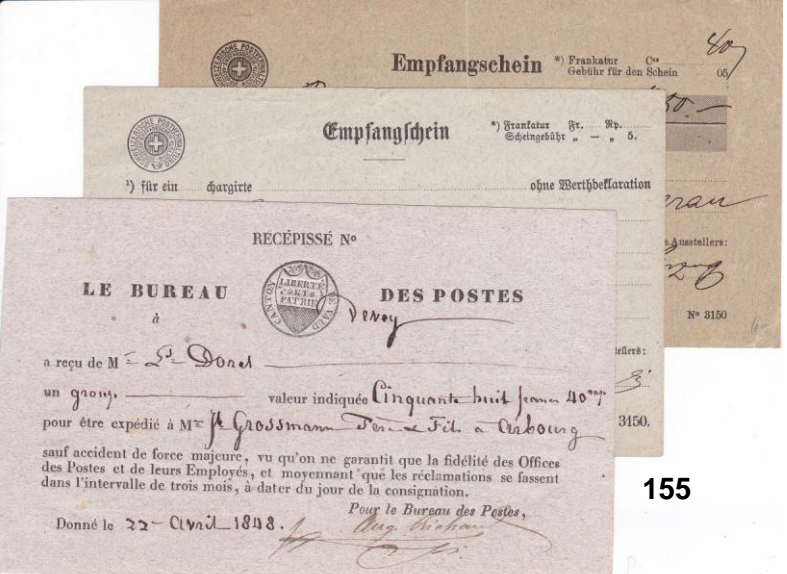 SCHWEIZERISCHE POSTVERWALTUNG
Empfangschein
*) Frankatur Cts 40
Gebühr für den Schein 05
50.–
Ausstellers:
No 3150
SCHWEIZERISCHE POSTVERWALTUNG
Empfangschein
*) Frankatur Fr. Rp.
Scheingebühr „ — „ 5.
¹) für ein chargirte ohne Werthdeklaration
tellers:
3150.
RÉCÉPISSÉ No
LE BUREAU DES POSTES
CANTON DE VAUD
LIBERTÉ
ET
PATRIE
à Vevey
a reçu de Mr Ls Doret
un group. valeur indiquée Cinquante huit francs 40 rap
pour être expédié à Mr Grossmann Père & Fils à Arbourg
sauf accident de force majeure, vu qu'on ne garantit que la fidélité des Offices
des Postes et de leurs Employés, et moyennant que les réclamations se fassent
dans l'intervalle de trois mois, à dater du jour de la consignation.
Pour le Bureau des Postes,
Donné le 22 Avril 1848.
155